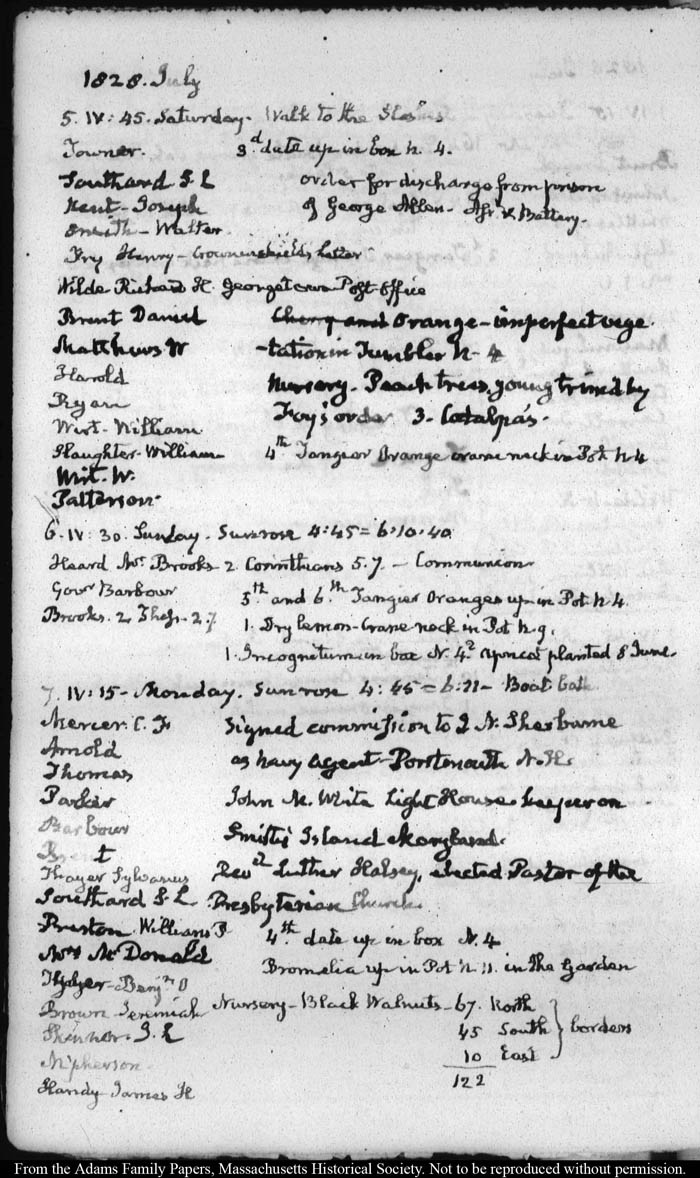 1828. July
5. IV: 45. Saturday. Walk to the
Towner. 3.d date up in box N. 4.
Southard S. L order for discharge from prison
Kent - Joseph of George Allen - Aff.r & Battery.
Smith - Walter.
Fry Henry - Crowninshield's Letter
Wilde Richard H. Georgetown Post-Office
Brent Daniel Cherry and Orange - imperfect vege
Matthews W -tation in Tumbler N - 4
Harold Nursery - Peach trees, young trimed by
Ryan Foy's order. 3 - Catalpa's.
Wirt - William
Slaughter - William 4.th Tangier Orange crane neck in Pot N 4
Wirt. W.
Patterson.
6. IV: 30. Sunday. Sunrose 4:45 = 6:10.40.
Heard Mr. Brooks 2. Corinthians 5. 7. - Communion
Gov.r Barbour 5.th and 6.th Tangier Oranges up in Pot. N 4.
Brooks. 2. Thess. 2. 7 1. Dry lemon - Crane neck in Pot N. 9.
1. Incognitum in box N. 4.2 Apricot planted 8 June.
7. IV: 15 - Monday. Sunrose 4: 45 = 6:11 - Boat bath
Mercer. C. F Signed commission to J. N. Sherburne
Arnold as Navy Agent - Portsmouth N. H.
Thomas
Parker John M. White Light House keeper on
Barbour Smith's Island Maryland.
Brent
Thayer Sylvanus Rev.d Luther Halsey, elected Pastor of the
Southard S. L Presbyterian Church.
Preston. William P 4.th date up in box N. 4
Mrs McDonald
Bromelia up in Pot N. 11. in the Garden
Benj.n O
Brown Jeremiah Nursery - Black Walnuts - 67. North
Skinner. J. L 45 South } borders
M'pherson. 10 East
Handy James H 122
From the Adams Family Papers, Massachusetts Historical Society. Not to be reproduced without permission.